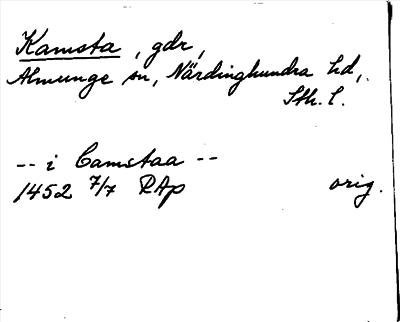 Kamsta, gdr,
Almunge sn, Närdinghundra hd,
Sth. l.
-- i Camstaa --
1452 7/7 RAp orig.